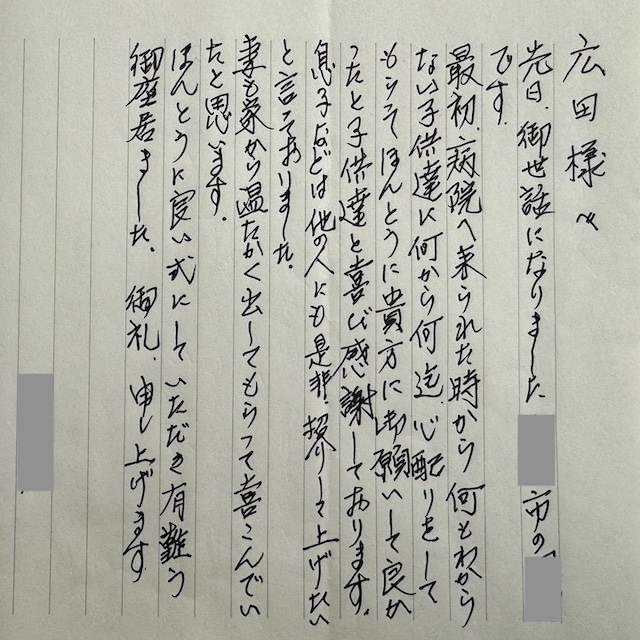 広田様へ
先日、御世話になりました 市の、
です。
最初、病院へ来られた時から何もわから
ない子供達に何から何迄、心配りをして
もらってほんとうに貴方に御願いして良か
ったと子供達と喜び感謝しております。
息子などは他の人にも是非、して上げたい
と言っておりました。
妻も家から温たかく出してもらって喜こんでい
たと思います。
ほんとうに良い式にしていただき有難う
御座居ました。御礼、申し上げます